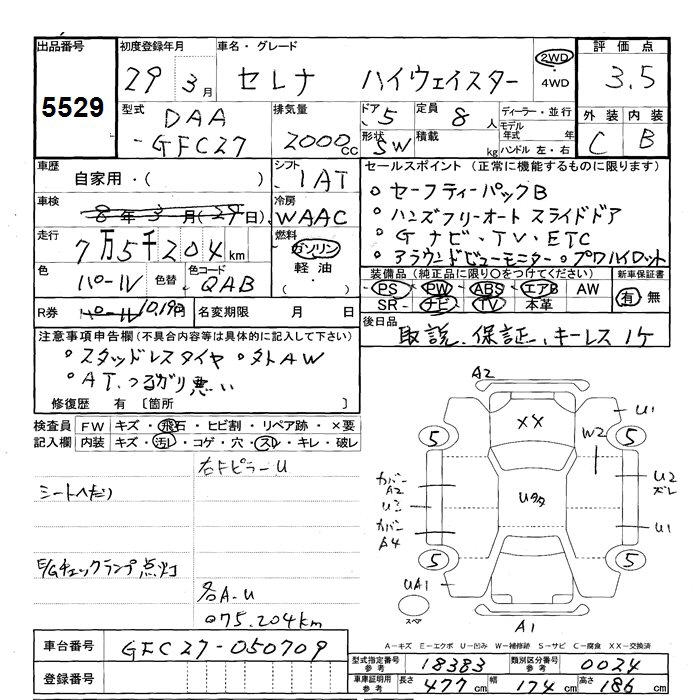 出品番号
5529
初度登録年月
29年3月
車名・グレード
セレナ ハイウェイスター
2WD
4WD
評価点
3.5
外装 内装
C B
型式
DAA
-GFC27
排気量
2000cc
ドア 5
形状 SW
定員 8人
積載 kg
ディーラー・並行
モデル年式 年
ハンドル 左・右
車歴
自家用・( )
シフト
1AT
車検
8年3月(29日)
冷房
WAAC
走行
7万5千204km
燃料
ガソリン
軽油
・( )
色
パール
色替
色コード
QAB
R券
パール 10,190円
名変期限 月 日
セールスポイント (正常に機能するものに限ります)
○セーフティーパックB
○ハンズフリーオートスライドドア
○Gナビ・TV・ETC
○アラウンドビューモニター○プロパイロット
装備品(純正品に限り○をつけてください)
PS PW ABS エアB AW
SR ナビ TV 本革
新車保証書
有 無
後日品
取説、保証、キーレス1ケ
注意事項申告欄(不具合内容等は具体的に記入して下さい)
○スタッドレスタイヤ○外AW
○AT、つながり悪い
修復歴 有〔箇所 〕
検査員 FW キズ・飛石・ヒビ割・リペア跡・×要
記入欄 内装 キズ・汚レ・コゲ・穴・スレ・キレ・破レ
右Fピラー U
シートヘたり
E/Gチェックランプ点灯
各A.U
○75.204km
A2
U1
5
XX
5
W2
カバー
A2
U2
ズレ
Uミ
Uタタ
カバー
A4
U1
5
5
UA1
スペア
A1
A-キズ E-エクボ U-凹み W-補修跡 S-サビ C-腐食 XX-交換済
車台番号 GFC27-050709
登録番号
型式指定番号 参考 18383
類別区分番号 参考 0024
車庫証明用 参考 長さ 477cm 幅 174cm 高さ 186cm